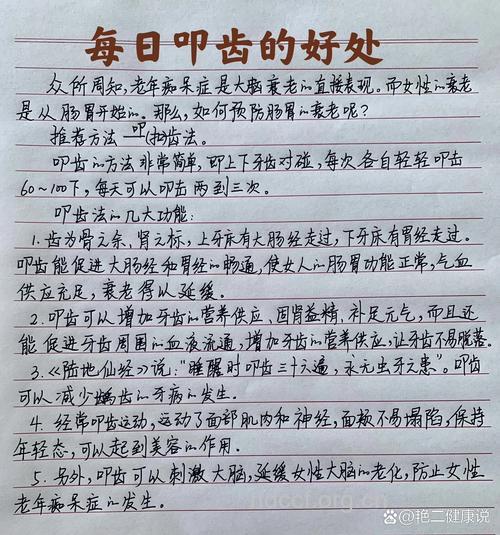 每日叩齿的好处
众所周知,老年痴呆症是大脑衰老的直接表现。而女性的衰老
是从肠胃开始的。那么,如何预防肠胃的衰老呢?
推荐方法 叩(扣)齿法。
叩齿的方法非常简单,即上下牙齿对碰,每次各自轻轻叩击
60~100下,每天可以叩击两到三次。
叩齿法的几大功能:
1.齿为骨之余、肾之标,上牙床有大肠经走过,下牙床有胃经走过。
叩齿能促进大肠经和胃经的畅通,使女人的肠胃功能正常,气血
供应充足,衰老得以延缓。
2.叩齿可以增加牙齿的营养供应、固肾益精、补足元气,而且还
能促进牙齿周围的血液流通,增加牙齿的营养供应,让牙齿不易脱落。
3.《陆地仙经》说:“睡醒时叩齿三十六遍,永无虫牙之患”。叩齿
可以减少龋齿的牙病的发生。
4.经常叩齿运动,运动了面部肌肉和神经,面颊不易塌陷,保持
年轻态,可以起到美容的作用。
5.另外,叩齿可以刺激大脑,延缓女性大脑的老化,防止女性
老年痴呆症的发生。
@艳二健康说